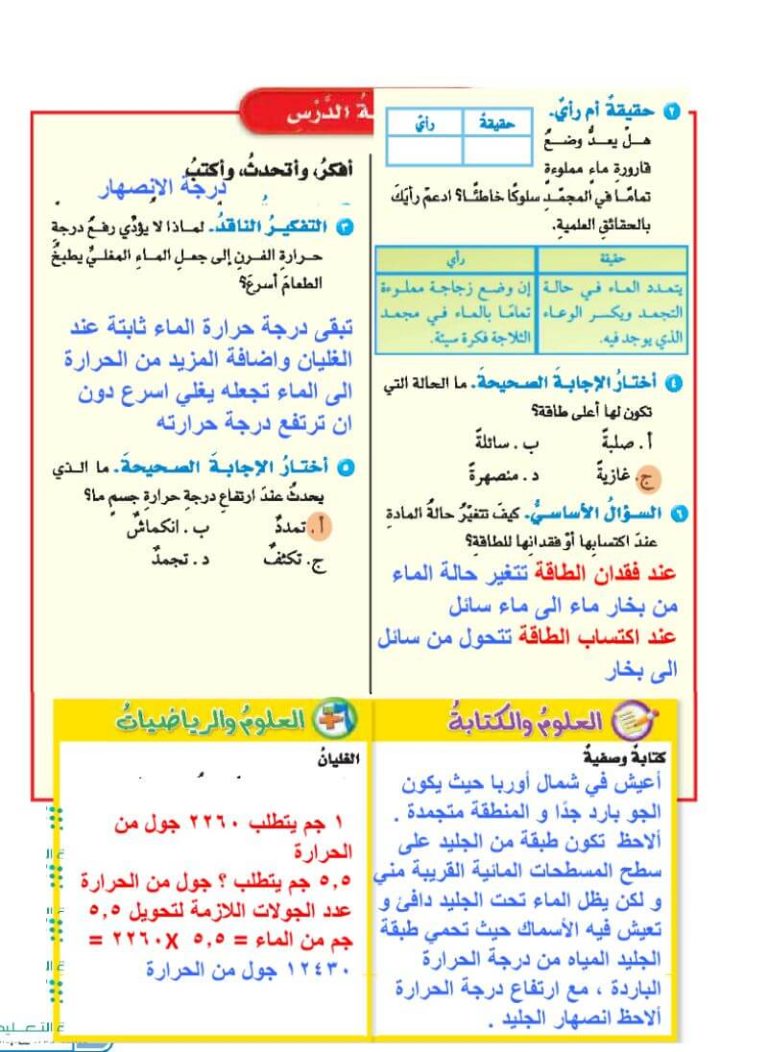 ةُ الدَّرْسِ
٢ حقيقةٌ أم رأيٌ.
حقيقةٌ
رأيٌ
هــلْ يعــدُّ وضــعُ
قارورةِ ماءٍ مملوءةٍ
تمامًــا في المجمِّـدِ سلوكًا خاطئًــا؟ ادعمْ رأيَكَ
بالحقائقِ العلميةِ.
حقيقة
رأي
يتمـدد المـاء فـي حالـة
التجمـد ويكسـر الوعـاء
الذي يوجد فيه.
إن وضـع زجاجـة مملـوءة
تمامًـا بالمـاء فـي مجمـد
الثلاجة فكرة سيئة.
٤ أختــارُ الإجابــةَ الصــحيحةَ. ما الحالة التي
تكون لها أعلى طاقة؟
أ . صلبةٌ
ب . سائلةٌ
ج. غازيةٌ
د . منصهرةٌ
٦ السـؤالُ الأساسـيُّ. كيفَ تتغيّرُ حالةُ المادةِ
عندَ اكتسابِها أوْ فقدانِها للطاقةِ؟
عند فقدان الطاقة تتغير حالة الماء
من بخار ماء الى ماء سائل
عند اكتساب الطاقة تتحول من سائل
الى بخار
أفكرُ، وأتحدثُ، وأكتبُ
درجة الانصهار
٣ التفكيــرُ الناقدُ. لمـاذا لا يؤدِّي رفعُ درجة
حــرارةِ الفــرنِ إلى جعــلِ المــاءِ المغلــيِّ يطبخُ
الطعامَ أسرعَ؟
تبقى درجة حرارة الماء ثابتة عند
الغليان واضافة المزيد من الحرارة
الى الماء تجعله يغلي اسرع دون
ان ترتفع درجة حرارته
٥ أختــارُ الإجابــةَ الصــحيحةَ. ما الــذي
يحدثُ عندَ ارتفاعِ درجةِ حرارةِ جسمٍ ما؟
أ. تمددٌ
ب . انكماشٌ
ج. تكثفٌ
د . تجمدٌ
العلومُ والكتابةُ
كتابةٌ وصفيةٌ
أعيش في شمال أوربا حيث يكون
الجو بارد جدًا و المنطقة متجمدة .
ألاحظ تكون طبقة من الجليد على
سطح المسطحات المائية القريبة مني
و لكن يظل الماء تحت الجليد دافئ و
تعيش فيه الأسماك حيث تحمي طبقة
الجليد المياه من درجة الحرارة
الباردة ، مع ارتفاع درجة الحرارة
ألاحظ انصهار الجليد .
العلومُ والرياضياتُ
الغليانُ
١ جم يتطلب ٢٢٦٠ جول من
الحرارة
٥,٥ جم يتطلب ؟ جول من الحرارة
عدد الجولات اللازمة لتحويل ٥,٥
جم من الماء = ٥,٥ X ٢٢٦٠ =
١٢٤٣٠ جول من الحرارة